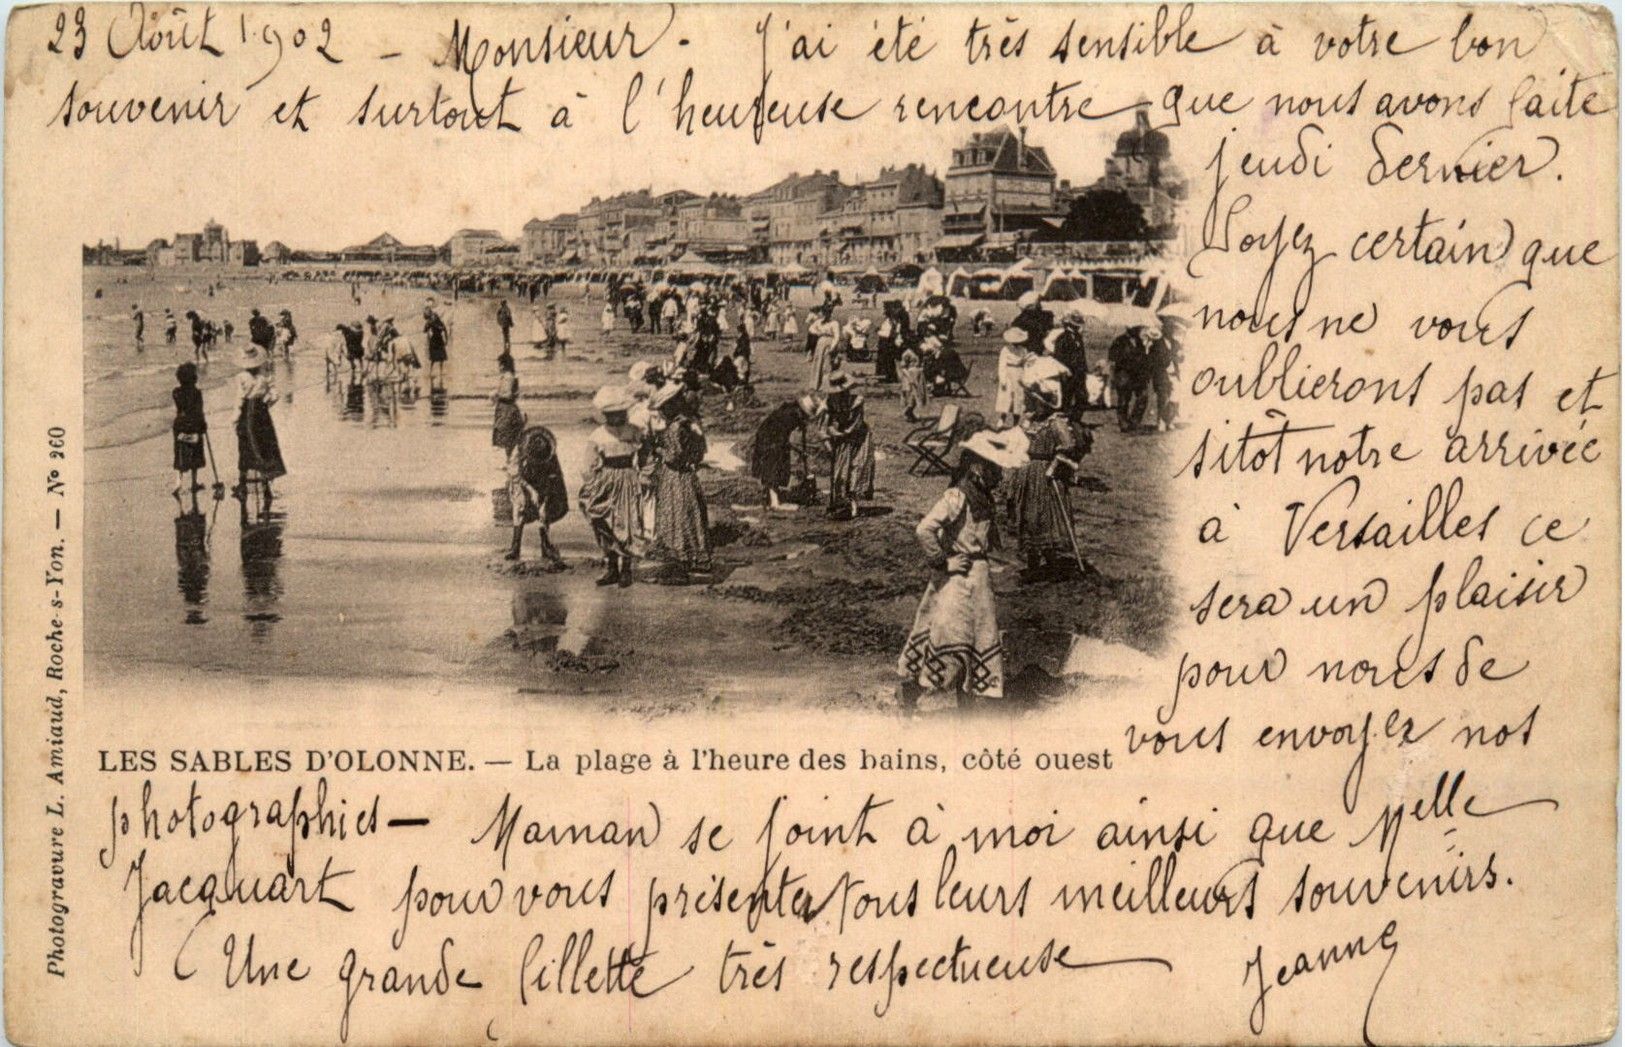 23 Août 1902 - Monsieur - J'ai été très sensible à votre bon
souvenir et surtout à l'heureuse rencontre que nous avons faite
jeudi dernier.
Soyez certain que
nous ne vous
oublierons pas et
sitôt notre arrivée
à Versailles ce
sera un plaisir
pour nous de
vous envoyez nos
photographies - Maman se joint à moi ainsi que Melle
Jacquart pour vous présenter tous leurs meilleurs souvenirs.
Une grande fillette très respectueuse Jeanne
LES SABLES D'OLONNE. — La plage à l'heure des bains, côté ouest
Photogravure L. Amiaud, Roche-s-Yon. — N° 260